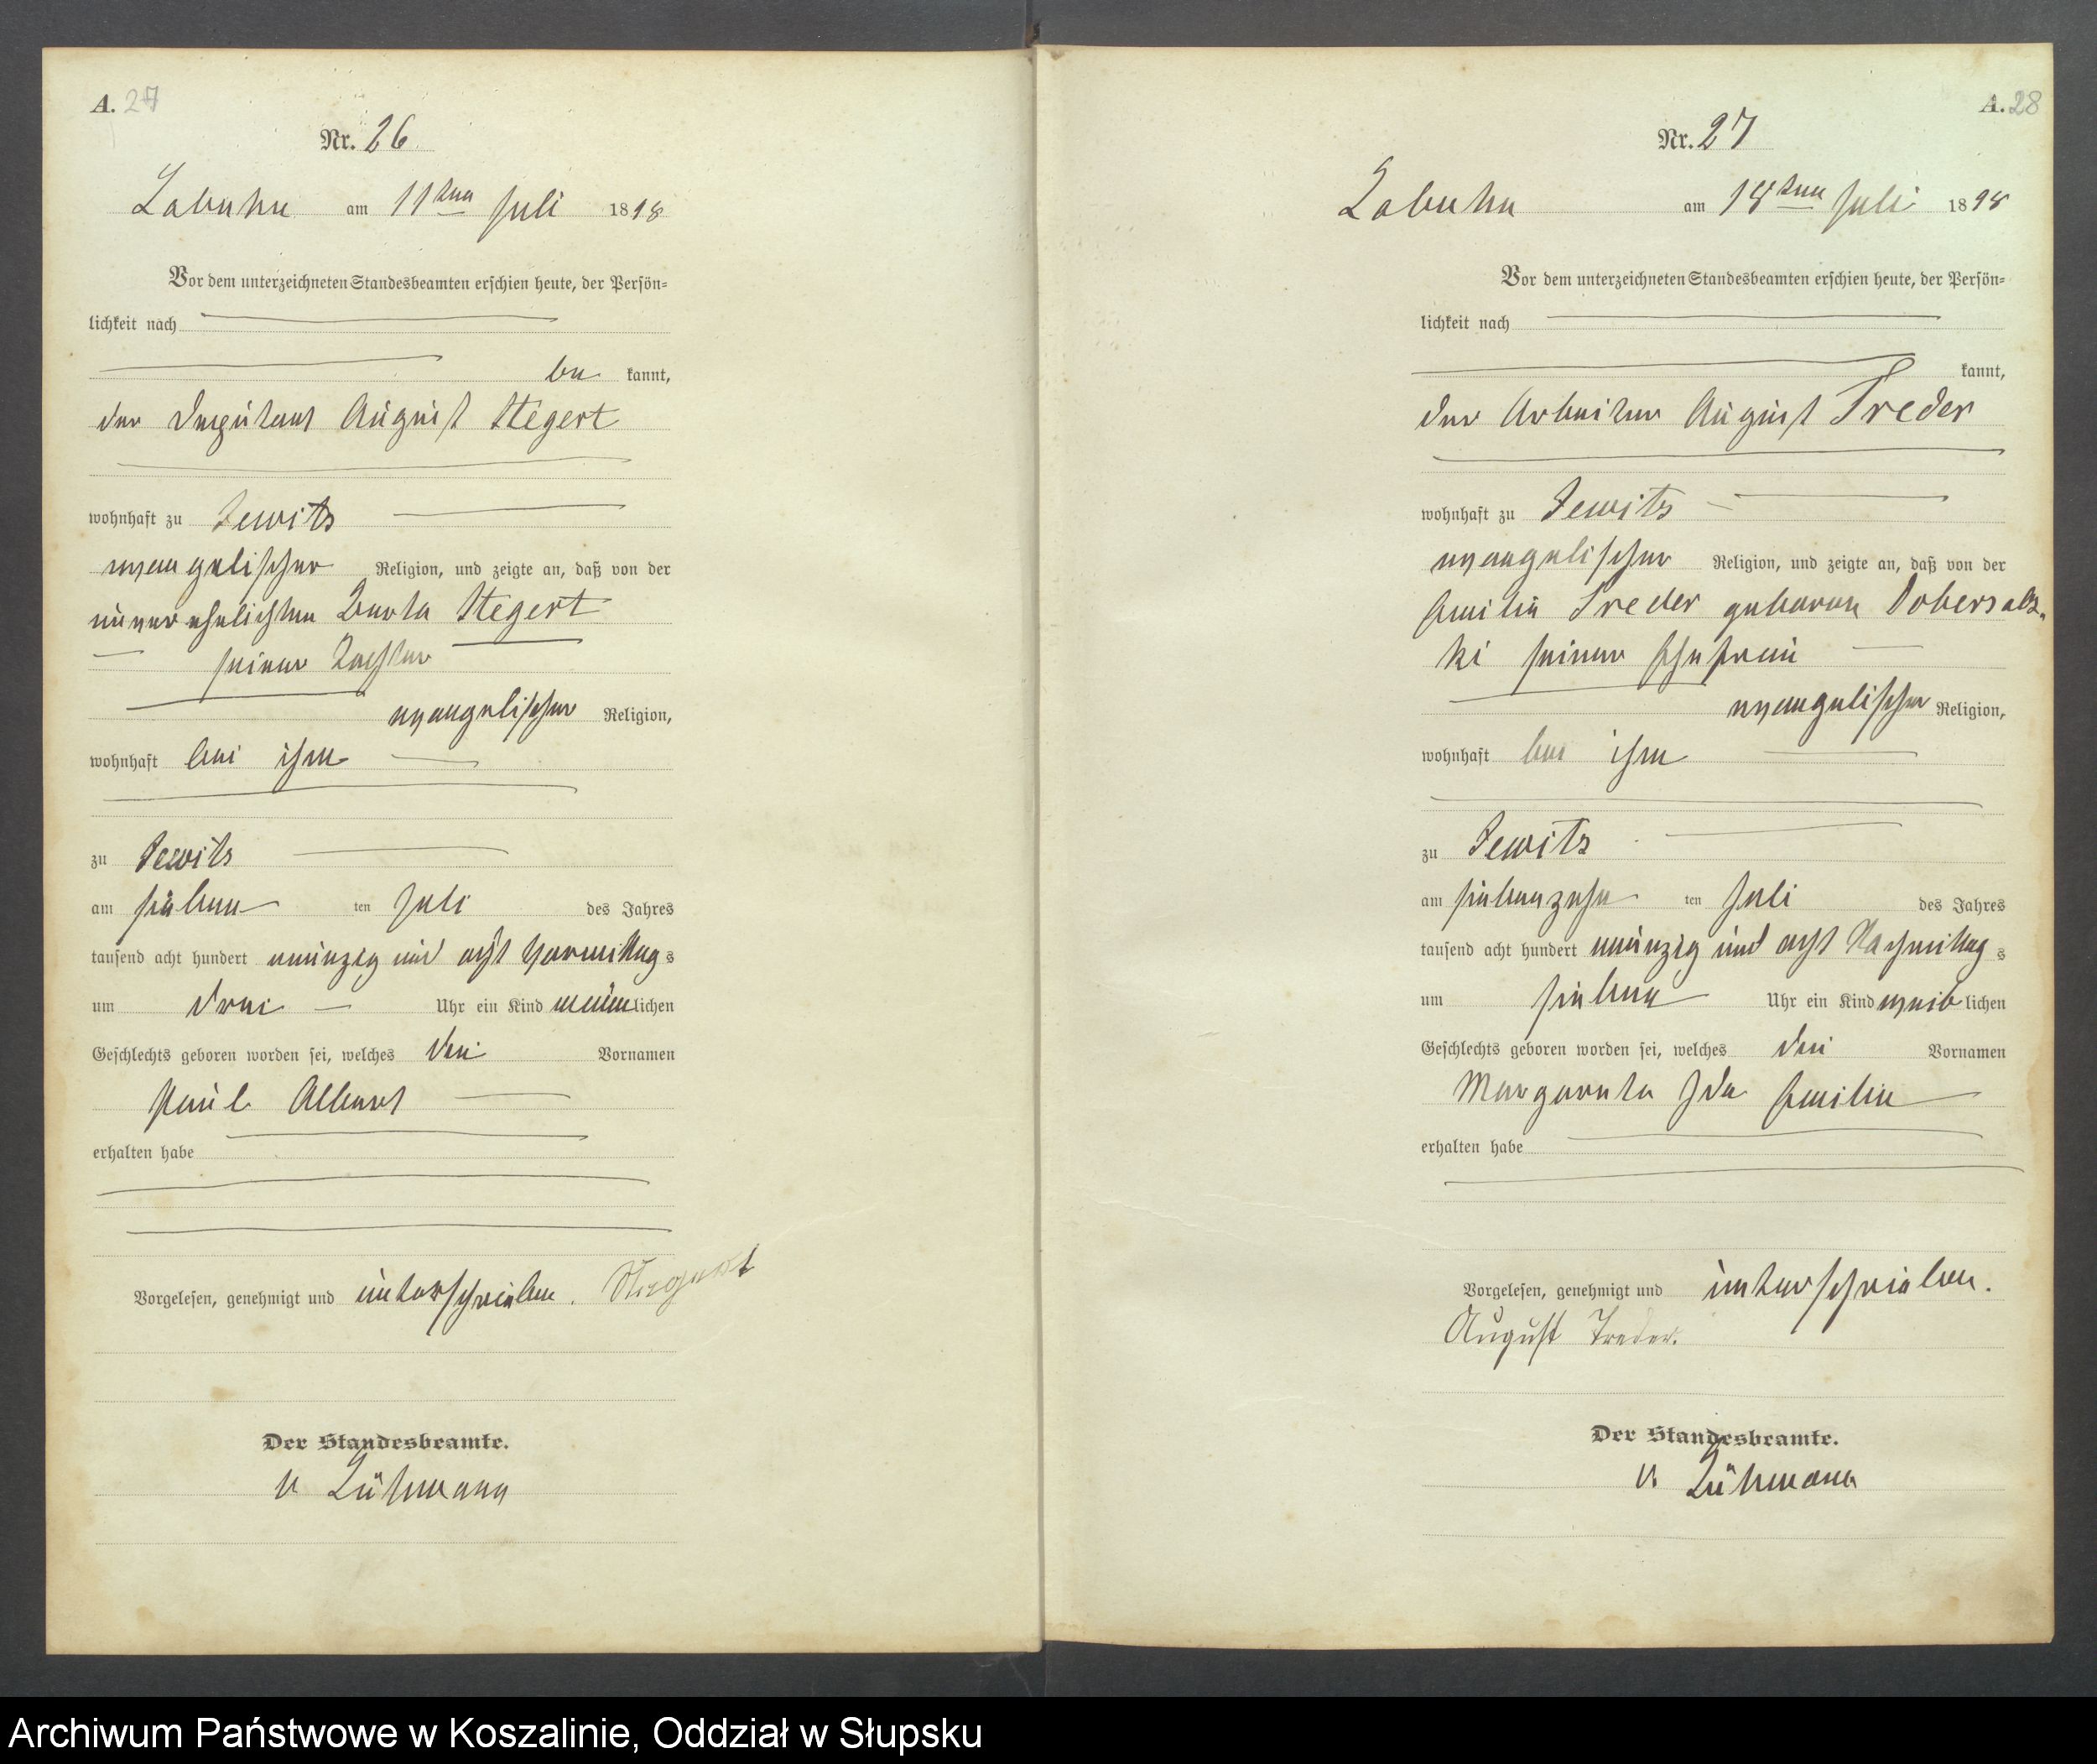 A. 27
Nr. 26
Labuhn am 11ten Juli 1898
Vor dem unterzeichneten Standesbeamten erschien heute, der Persön-
lichkeit nach
be kannt,
der Deputant August Stegert
wohnhaft zu Jewitz
evangelischer Religion, und zeigte an, daß von der
unverehelichten Berta Stegert
seiner Tochter
evangelischer Religion,
wohnhaft bei ihm
zu Jewitz
am sieben ten Juli des Jahres
tausend acht hundert neunzig und acht Vormittag s
um drei Uhr ein Kind männlichen
Geschlechts geboren worden sei, welches die Vornamen
Paul Albert
erhalten habe
Vorgelesen, genehmigt und unterschrieben. Stegert
Der Standesbeamte.
v Lühmann
A. 28
Nr. 27
Labuhn am 18ten Juli 1898
Vor dem unterzeichneten Standesbeamten erschien heute, der Persön-
lichkeit nach
kannt,
der Arbeiter August Treder
wohnhaft zu Jewitz
evangelischer Religion, und zeigte an, daß von der
Emilie Treder geborene
ki seiner Ehefrau
evangelischer Religion,
wohnhaft bei ihm
zu Jewitz
am siebenzehn ten Juli des Jahres
tausend acht hundert neunzig und acht Nachmittag s
um sieben Uhr ein Kind weiblichen
Geschlechts geboren worden sei, welches die Vornamen
Margareta Ida Emilie
erhalten habe
Vorgelesen, genehmigt und unterschrieben.
August Treder.
Der Standesbeamte.
v. Lühmann
Archiwum Państwowe w Koszalinie, Oddział w Słupsku